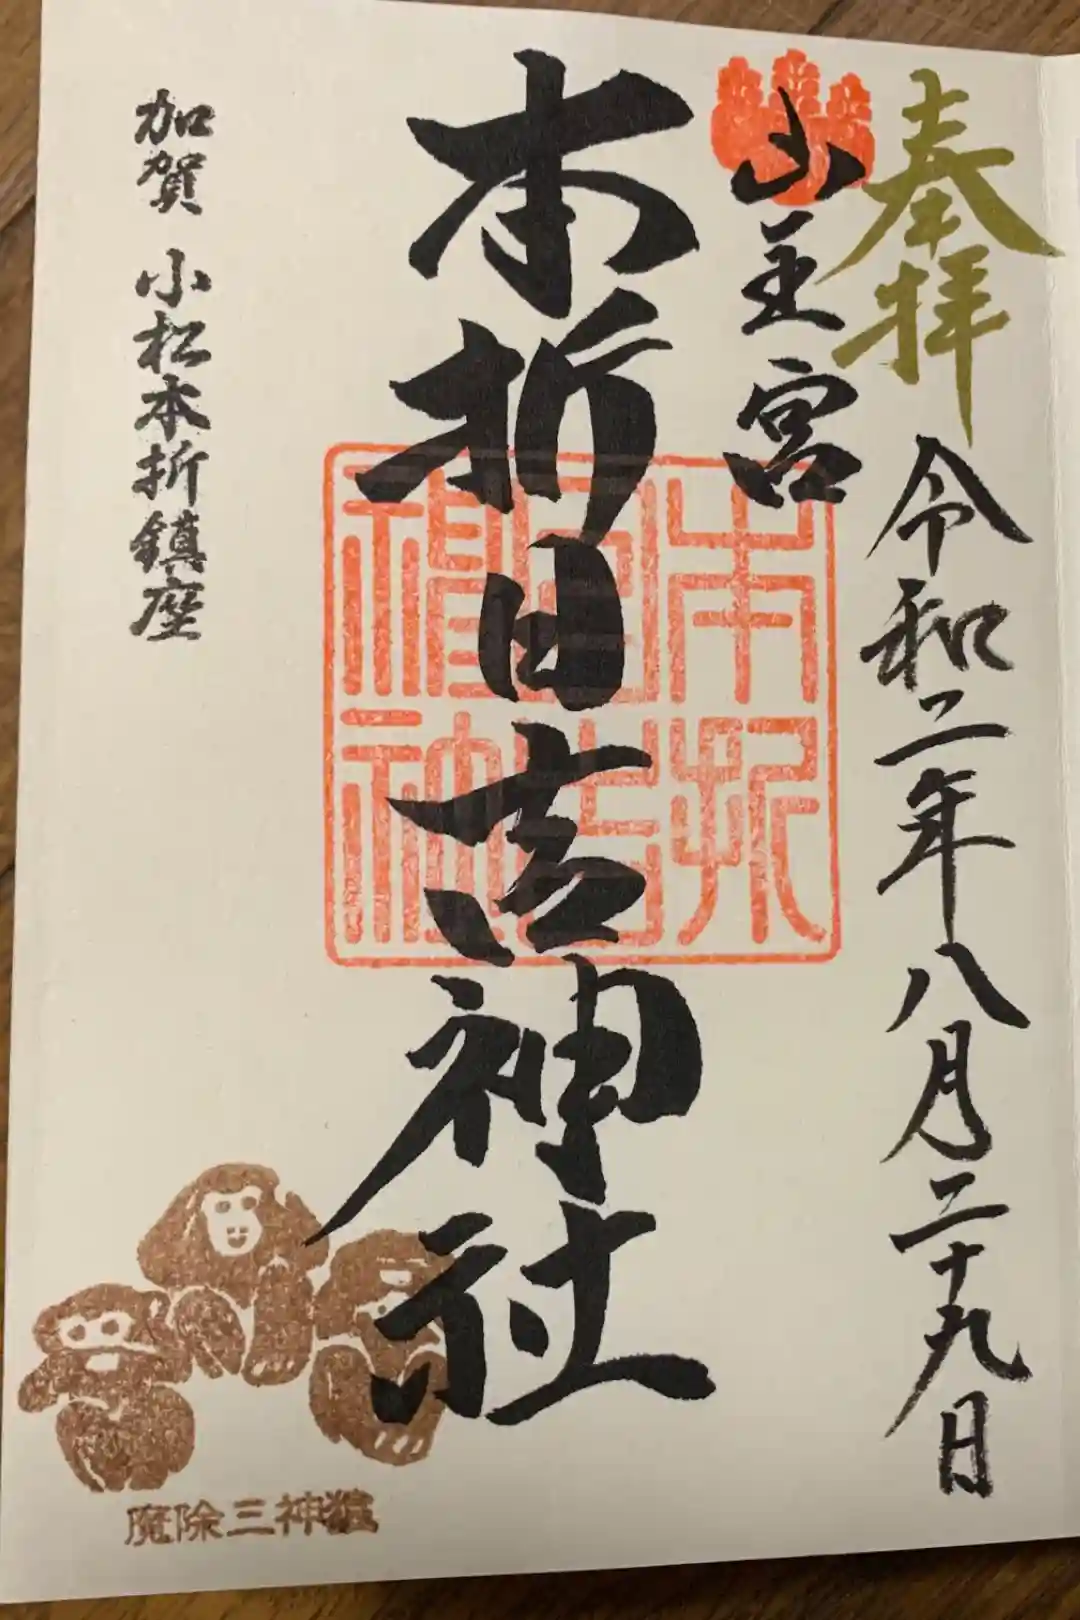 奉拝
令和二年八月二十九日
山王宮
本折日吉神社
本折
加賀 小松本折鎮座
魔除三神猿